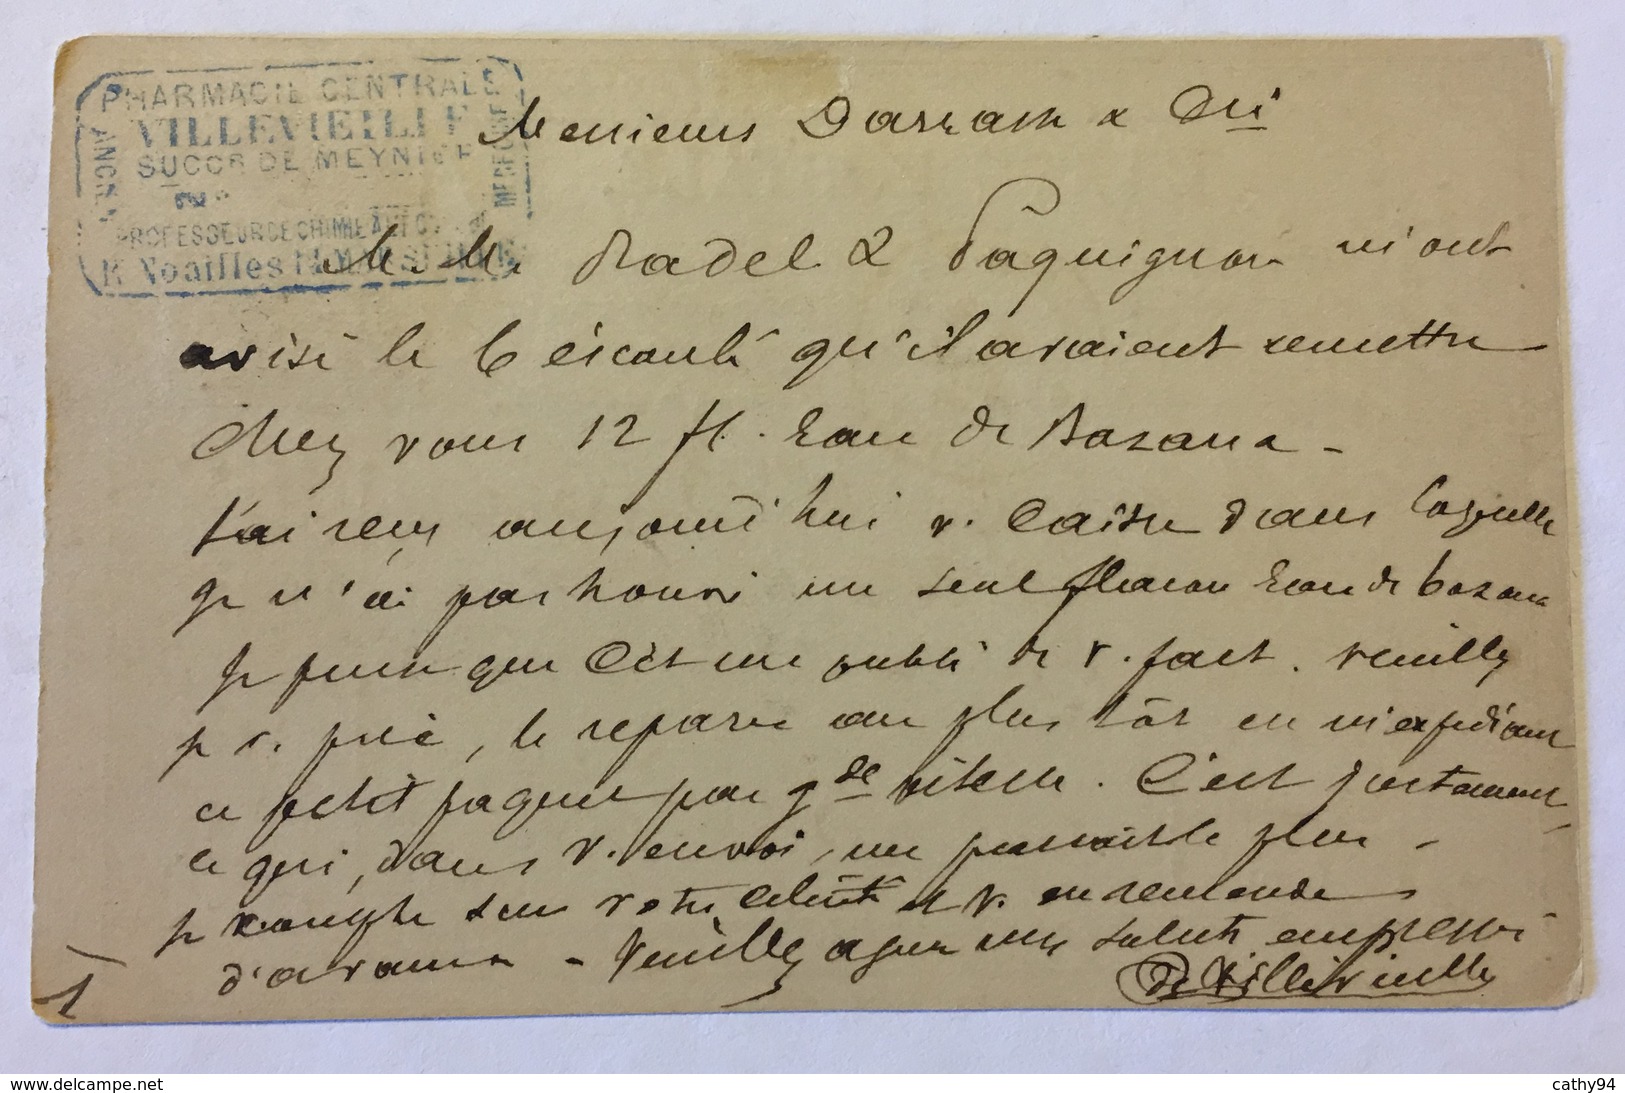 PHARMACIE CENTRALE
VILLEVIEILLE
SUCCR DE MEYNIER
PROFESSEUR DE CHIMIE
R. Noailles
Messieurs Darrasse & Cie
M.M. Radel & Paquignon m'ont
avisé le 6 écoulé qu'il avaient remettre
chez vous 12 fl. Eau de Bazana -
J'ai reçu aujourd'hui v. caisse dans laquelle
je n'ai pas trouvé un seul flacon Eau de bozana
Je pense que c'est un oubli de v. part. veuillez
je v. prie, le reparer au plus tôt en m'expédiant
ce petit paquet par gde vitesse. C'est justement
ce qui, dans v. envoi, me pressait le plus -
je compte sur votre célérité et v. en remercie
d'avance - Veuillez agréer mes saluts empressés
Dr Villevieille
1
www.delcampe.net
cathy94